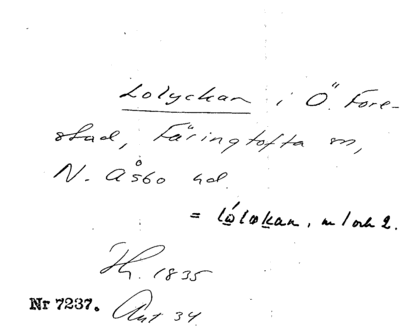 Lolyckan i Ö. Fore-
stad, Färingtofta sn,
N. Åsbo hd.
= lóløkan, m 1 och 2.
Th. 1835
Nr 7237. Ant 34